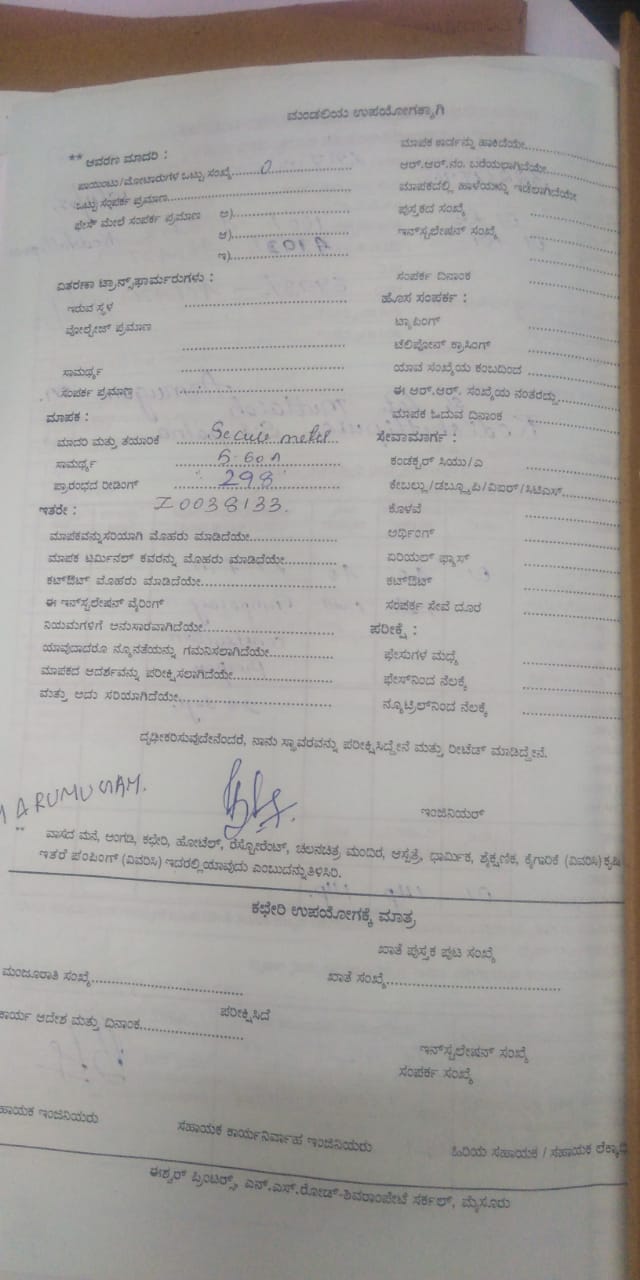 ಮಂಡಲಿಯ ಉಪಯೋಗಕ್ಕಾಗಿ
** ಆವರಣ ಮಾದರಿ :
ಪಾಯಿಂಟು/ಮೋಟಾರುಗಳ ಒಟ್ಟು ಸಂಖ್ಯೆ........0
ಒಟ್ಟು ಸಂಪರ್ಕ ಪ್ರಮಾಣ........
ಫೇಸ್ ಮೇಲೆ ಸಂಪರ್ಕ ಪ್ರಮಾಣ ಅ)........
ಆ)........
ಇ)........
ವಿತರಣಾ ಟ್ರಾನ್ಸ್‌ಫಾರ್ಮರುಗಳು :
ಇರುವ ಸ್ಥಳ ........
ವೋಲ್ಟೇಜ್ ಪ್ರಮಾಣ ........
ಸಾಮರ್ಥ್ಯ ........
ಸಂಪರ್ಕ ಪ್ರಮಾಣ ........
ಮಾಪಕ :
ಮಾದರಿ ಮತ್ತು ತಯಾರಿಕೆ Secure meter
ಸಾಮರ್ಥ್ಯ 5-60A
ಪ್ರಾರಂಭದ ರೀಡಿಂಗ್ 298
ಇತರೇ : I0038133.
ಮಾಪಕವನ್ನು ಸರಿಯಾಗಿ ಮೊಹರು ಮಾಡಿದೆಯೇ........
ಮಾಪಕ ಟರ್ಮಿನಲ್ ಕವರನ್ನು ಮೊಹರು ಮಾಡಿದೆಯೇ........
ಕಟ್‌ಔಟ್ ಮೊಹರು ಮಾಡಿದೆಯೇ........
ಈ ಇನ್‌ಸ್ಟಲೇಷನ್ ವೈರಿಂಗ್
ನಿಯಮಗಳಿಗೆ ಅನುಸಾರವಾಗಿದೆಯೇ........
ಯಾವುದಾದರೂ ನ್ಯೂನತೆಯನ್ನು ಗಮನಿಸಲಾಗಿದೆಯೇ........
ಮಾಪಕದ ಆದರ್ಶವನ್ನು ಪರೀಕ್ಷಿಸಲಾಗಿದೆಯೇ........
ಮತ್ತು ಅದು ಸರಿಯಾಗಿದೆಯೇ........
ಮಾಪಕ ಕಾರ್ಡನ್ನು ಹಾಕಿದೆಯೇ........
ಆರ್.ಆರ್.ನಂ. ಬರೆಯಲಾಗಿದೆಯೇ........
ಮಾಪಕದಲ್ಲಿ ಹಾಳೆಯನ್ನು ಇಡಲಾಗಿದೆಯೇ
ಪುಸ್ತಕದ ಸಂಖ್ಯೆ ........
ಇನ್‌ಸ್ಟಲೇಷನ್ ಸಂಖ್ಯೆ ........
ಸಂಪರ್ಕ ದಿನಾಂಕ ........
ಹೊಸ ಸಂಪರ್ಕ :
ಟ್ಯಾಪಿಂಗ್ ........
ಟೆಲಿಪೋನ್ ಕ್ರಾಸಿಂಗ್ ........
ಯಾವ ಸಂಖ್ಯೆಯ ಕಂಬದಿಂದ ........
ಈ ಆರ್.ಆರ್. ಸಂಖ್ಯೆಯ ನಂತರದ್ದು........
ಮಾಪಕ ಓದುವ ದಿನಾಂಕ ........
ಸೇವಾಮಾರ್ಗ :
ಕಂಡಕ್ಟರ್ ಸಿಯು/ಎ ........
ಕೇಬಲ್ಲು/ಡಬ್ಲ್ಯೂಪಿ/ವಿಐಆರ್/ಸಿಟಿಎಸ್........
ಕೊಳವೆ ........
ಅರ್ಥಿಂಗ್ ........
ಏರಿಯಲ್ ಫ್ಯೂಸ್ ........
ಕಟ್‌ಔಟ್ ........
ಸಂಪರ್ಕ ಸೇವೆ ದೂರ ........
ಪರೀಕ್ಷೆ :
ಫೇಸುಗಳ ಮಧ್ಯೆ ........
ಫೇಸ್‌ನಿಂದ ನೆಲಕ್ಕೆ ........
ನ್ಯೂಟ್ರೆಲ್‌ನಿಂದ ನೆಲಕ್ಕೆ ........
ದೃಢೀಕರಿಸುವುದೇನೆಂದರೆ, ನಾನು ಸ್ಥಾವರವನ್ನು ಪರೀಕ್ಷಿಸಿದ್ದೇನೆ ಮತ್ತು ರೀಟೆಡ್ ಮಾಡಿದ್ದೇನೆ.
ARUMUGAM.
ಇಂಜಿನಿಯರ್
** ವಾಸದ ಮನೆ, ಅಂಗಡಿ, ಕಛೇರಿ, ಹೋಟೆಲ್, ರೆಸ್ಟೋರೆಂಟ್, ಚಲನಚಿತ್ರ ಮಂದಿರ, ಆಸ್ಪತ್ರೆ, ಧಾರ್ಮಿಕ, ಶೈಕ್ಷಣಿಕ, ಕೈಗಾರಿಕೆ (ವಿವರಿಸಿ) ಕೃಷಿ
ಇತರೆ ಪಂಪಿಂಗ್ (ವಿವರಿಸಿ) ಇದರಲ್ಲಿ ಯಾವುದು ಎಂಬುದನ್ನು ತಿಳಿಸಿರಿ.
ಕಛೇರಿ ಉಪಯೋಗಕ್ಕೆ ಮಾತ್ರ
ಖಾತೆ ಪುಸ್ತಕ ಪುಟ ಸಂಖ್ಯೆ
ಮಂಜೂರಾತಿ ಸಂಖ್ಯೆ........ ಖಾತೆ ಸಂಖ್ಯೆ........
ಪರೀಕ್ಷಿಸಿದೆ
ಕಾರ್ಯ ಆದೇಶ ಮತ್ತು ದಿನಾಂಕ........
ಇನ್‌ಸ್ಟಲೇಷನ್ ಸಂಖ್ಯೆ
ಸಂಪರ್ಕ ಸಂಖ್ಯೆ
ಸಹಾಯಕ ಇಂಜಿನಿಯರು ಸಹಾಯಕ ಕಾರ್ಯನಿರ್ವಾಹ ಇಂಜಿನಿಯರು ಹಿರಿಯ ಸಹಾಯಕ / ಸಹಾಯಕ
ಈಶ್ವರ್ ಪ್ರಿಂಟರ್ಸ್, ಎನ್.ಎಸ್.ರೋಡ್-ಶಿವರಾಂಪೇಟೆ ಸರ್ಕಲ್, ಮೈಸೂರು